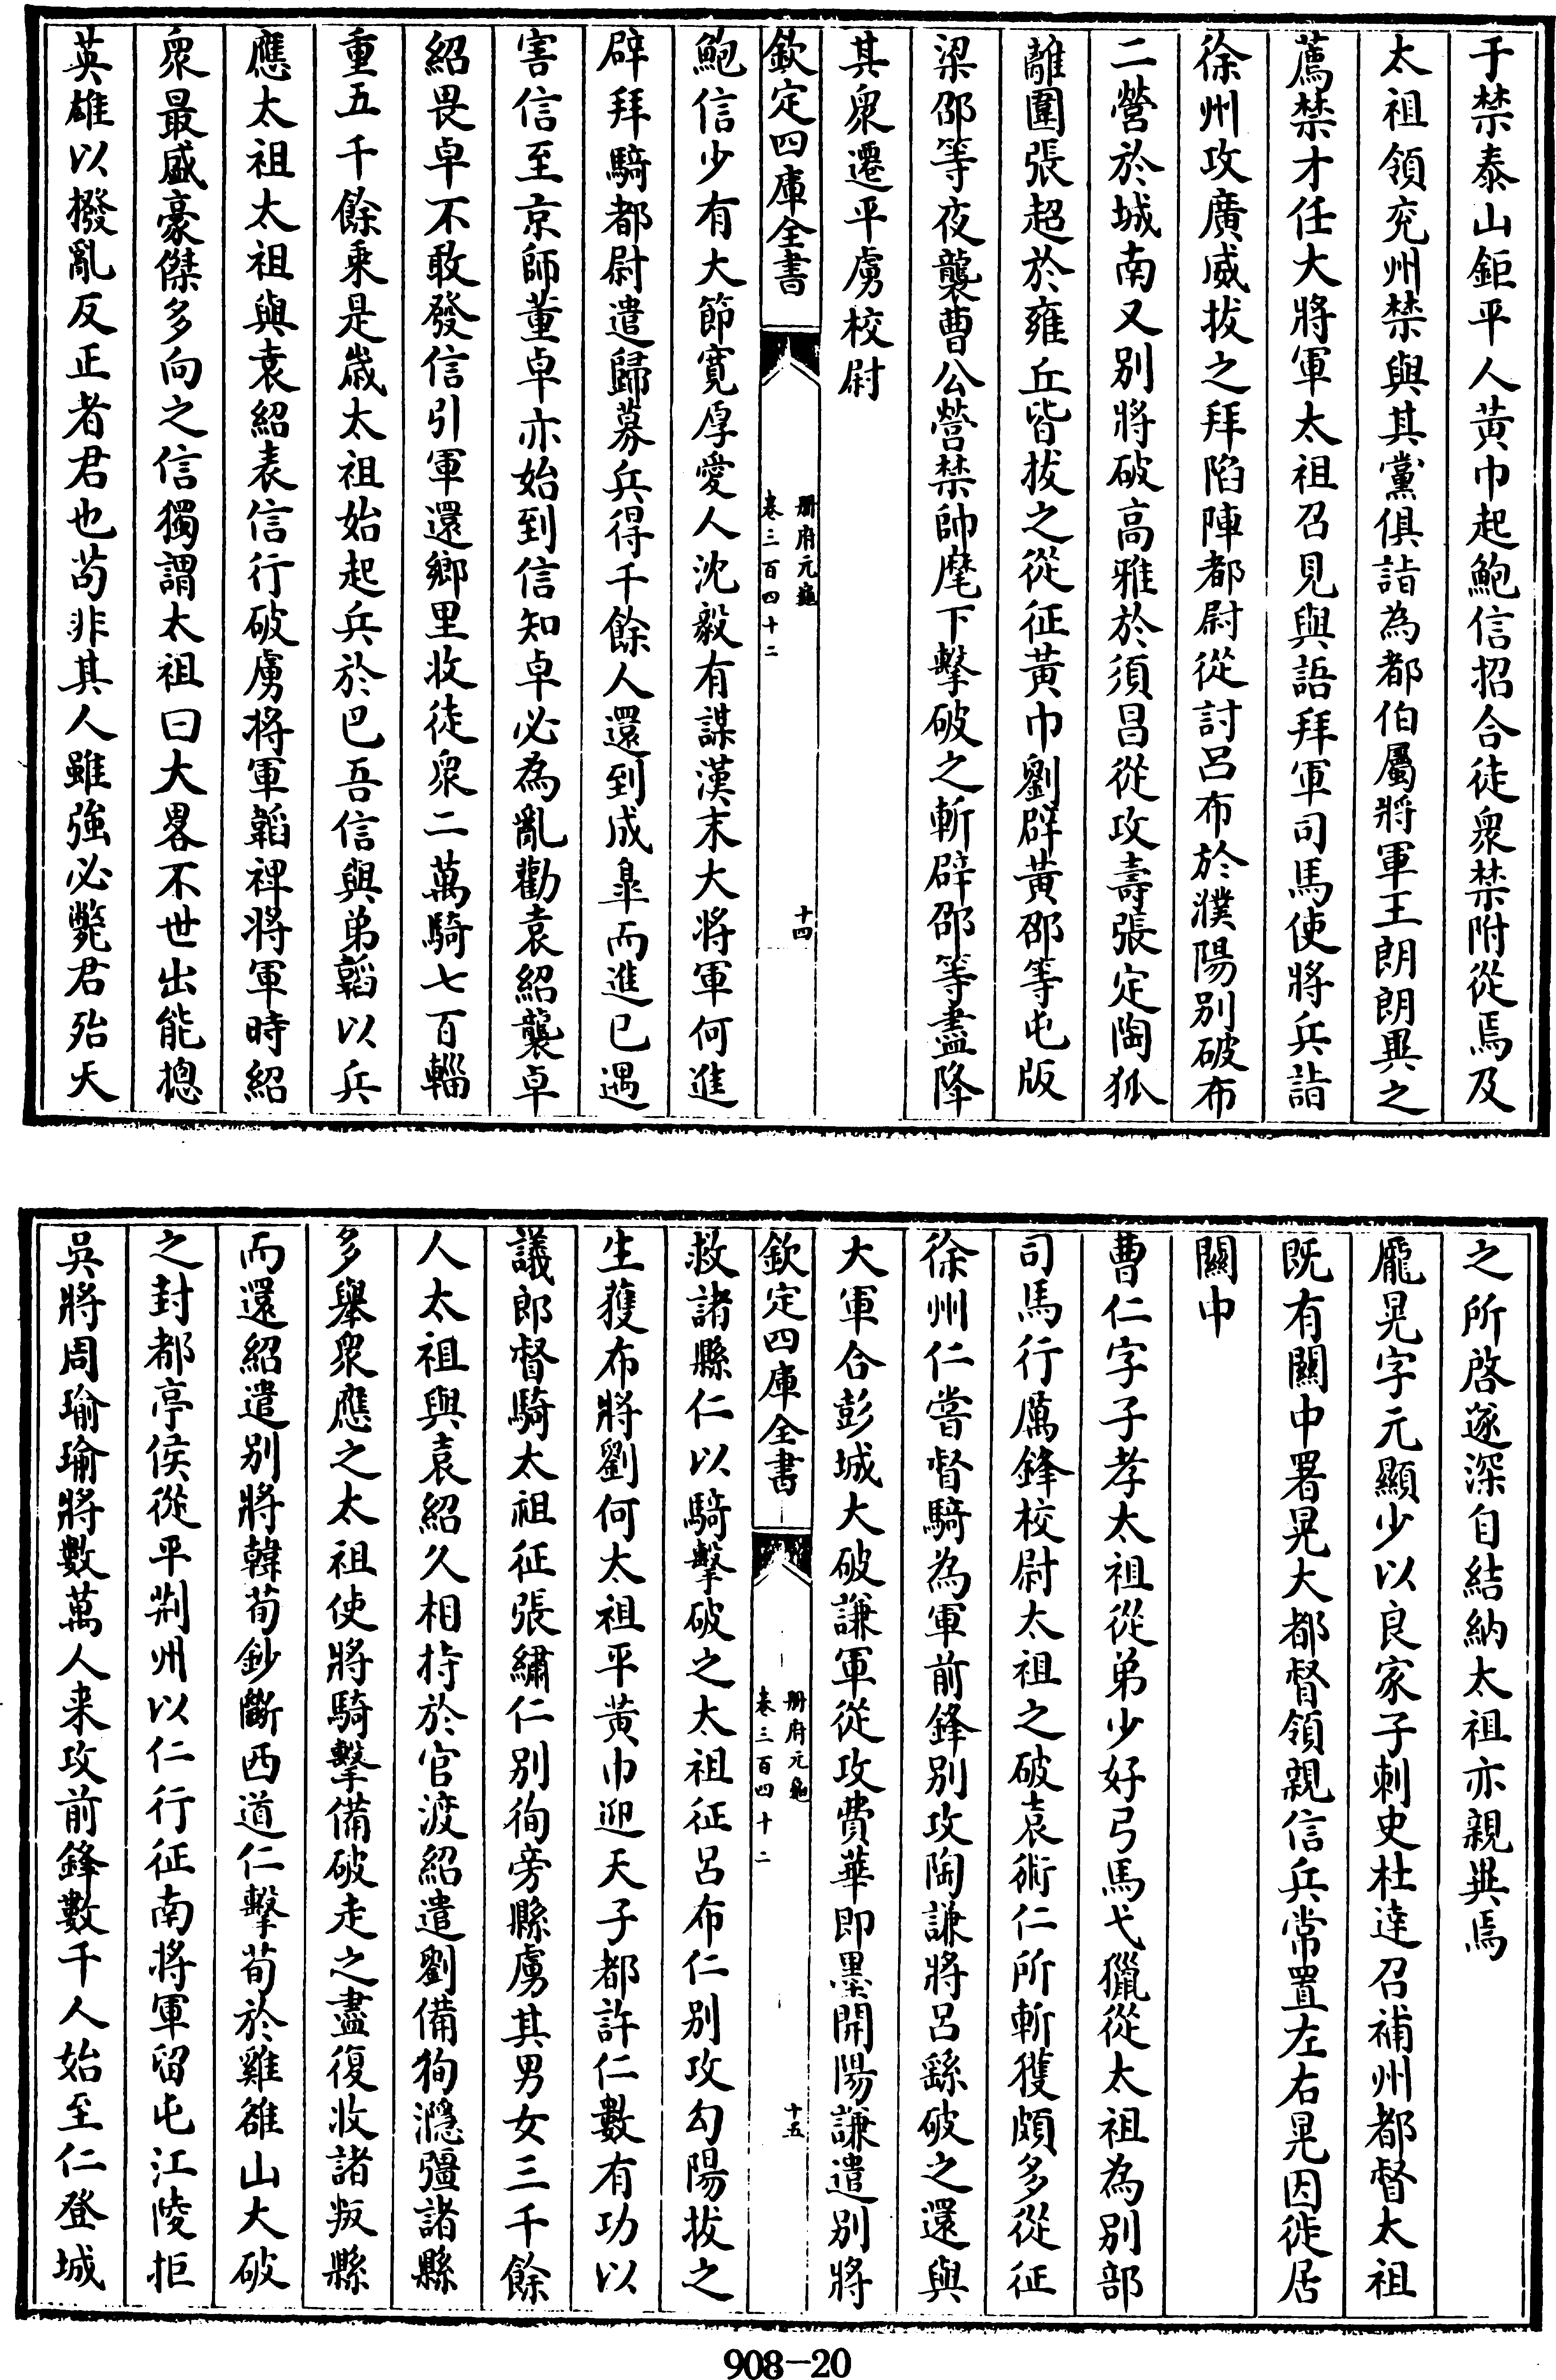 于禁泰山鉅平人黄巾起鮑信招合徒衆禁附從焉及
太祖領兖州禁與其黨俱詣為都伯屬將軍王朗朗異之
薦禁才任大將軍太祖召見與語拜軍司馬使將兵詣
徐州攻廣威拔之拜陷陣都尉從討呂布於濮陽别破布
二營於城南又别將破高雅於須昌從攻壽張定陶狐
離圍張超於雍丘皆拔之從征黄巾劉辟黄邵等屯版
梁邵等夜襲曹公營禁帥麾下擊破之斬辟邵等盡降
其衆遷平虜校尉
欽定四庫全書
册府元龜
卷三百四十二
十四
鮑信少有大節寛厚愛人沈毅有謀漢末大將軍何進
辟拜騎都尉遣歸募兵得千餘人還到成臯而進已遇
害信至京師董卓亦始到信知卓必為亂勸袁紹襲卓
紹畏卓不敢發信引軍還鄉里收徒衆二萬騎七百輜
重五千餘乗是歲太祖始起兵於巴吾信與弟韜以兵
應太祖太祖與袁紹表信行破虜將軍韜裨將軍時紹
衆最盛豪傑多向之信獨謂太祖曰大畧不世出能揔
英雄以撥亂反正者君也苟非其人雖強必斃君殆天
之所啓遂深自結納太祖亦親異焉
龐晃字元顯少以良家子刺史杜達召補州都督太祖
既有關中署晃大都督領親信兵常置左右晃因徙居
關中
曹仁字子孝太祖從弟少好弓馬弋獵從太祖為别部
司馬行厲鋒校尉太祖之破袁術仁所斬獲頗多從征
徐州仁嘗督騎為軍前鋒别攻陶謙將呂繇破之還與
大軍合彭城大破謙軍從攻費華即墨開陽謙遣别將
欽定四庫全書
册府元龜
卷三百四十二
十五
救諸縣仁以騎擊破之太祖征呂布仁别攻勾陽拔之
生獲布將劉何太祖平黄巾迎天子都許仁數有功以
議郎督騎太祖征張繡仁别徇旁縣虜其男女三千餘
人太祖與袁紹久相持於官渡紹遣劉備徇㶏彊諸縣
多舉衆應之太祖使將騎擊備破走之盡復收諸叛縣
而還紹遣别將韓荀鈔斷西道仁擊荀於雞雒山大破
之封都亭侯從平荆州以仁行征南將軍留屯江陵拒
吳將周瑜瑜將數萬人来攻前鋒數千人始至仁登城
908—20